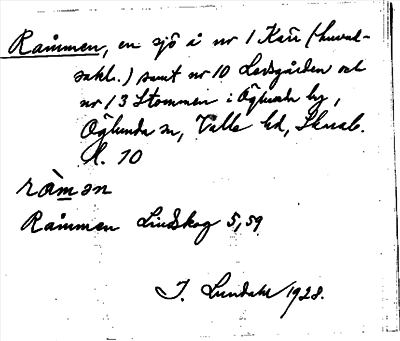 Råmmen, en sjö å nr 1 Karä (huvud-
sakl.) samt nr 10 Ledsgården och
nr 13 Stommen i Öglunda by,
Öglunda sn, Valle hd, Skarab.
l. 10
råman
Råmmen Lindskog 5,59
I. Lundahl 1928.